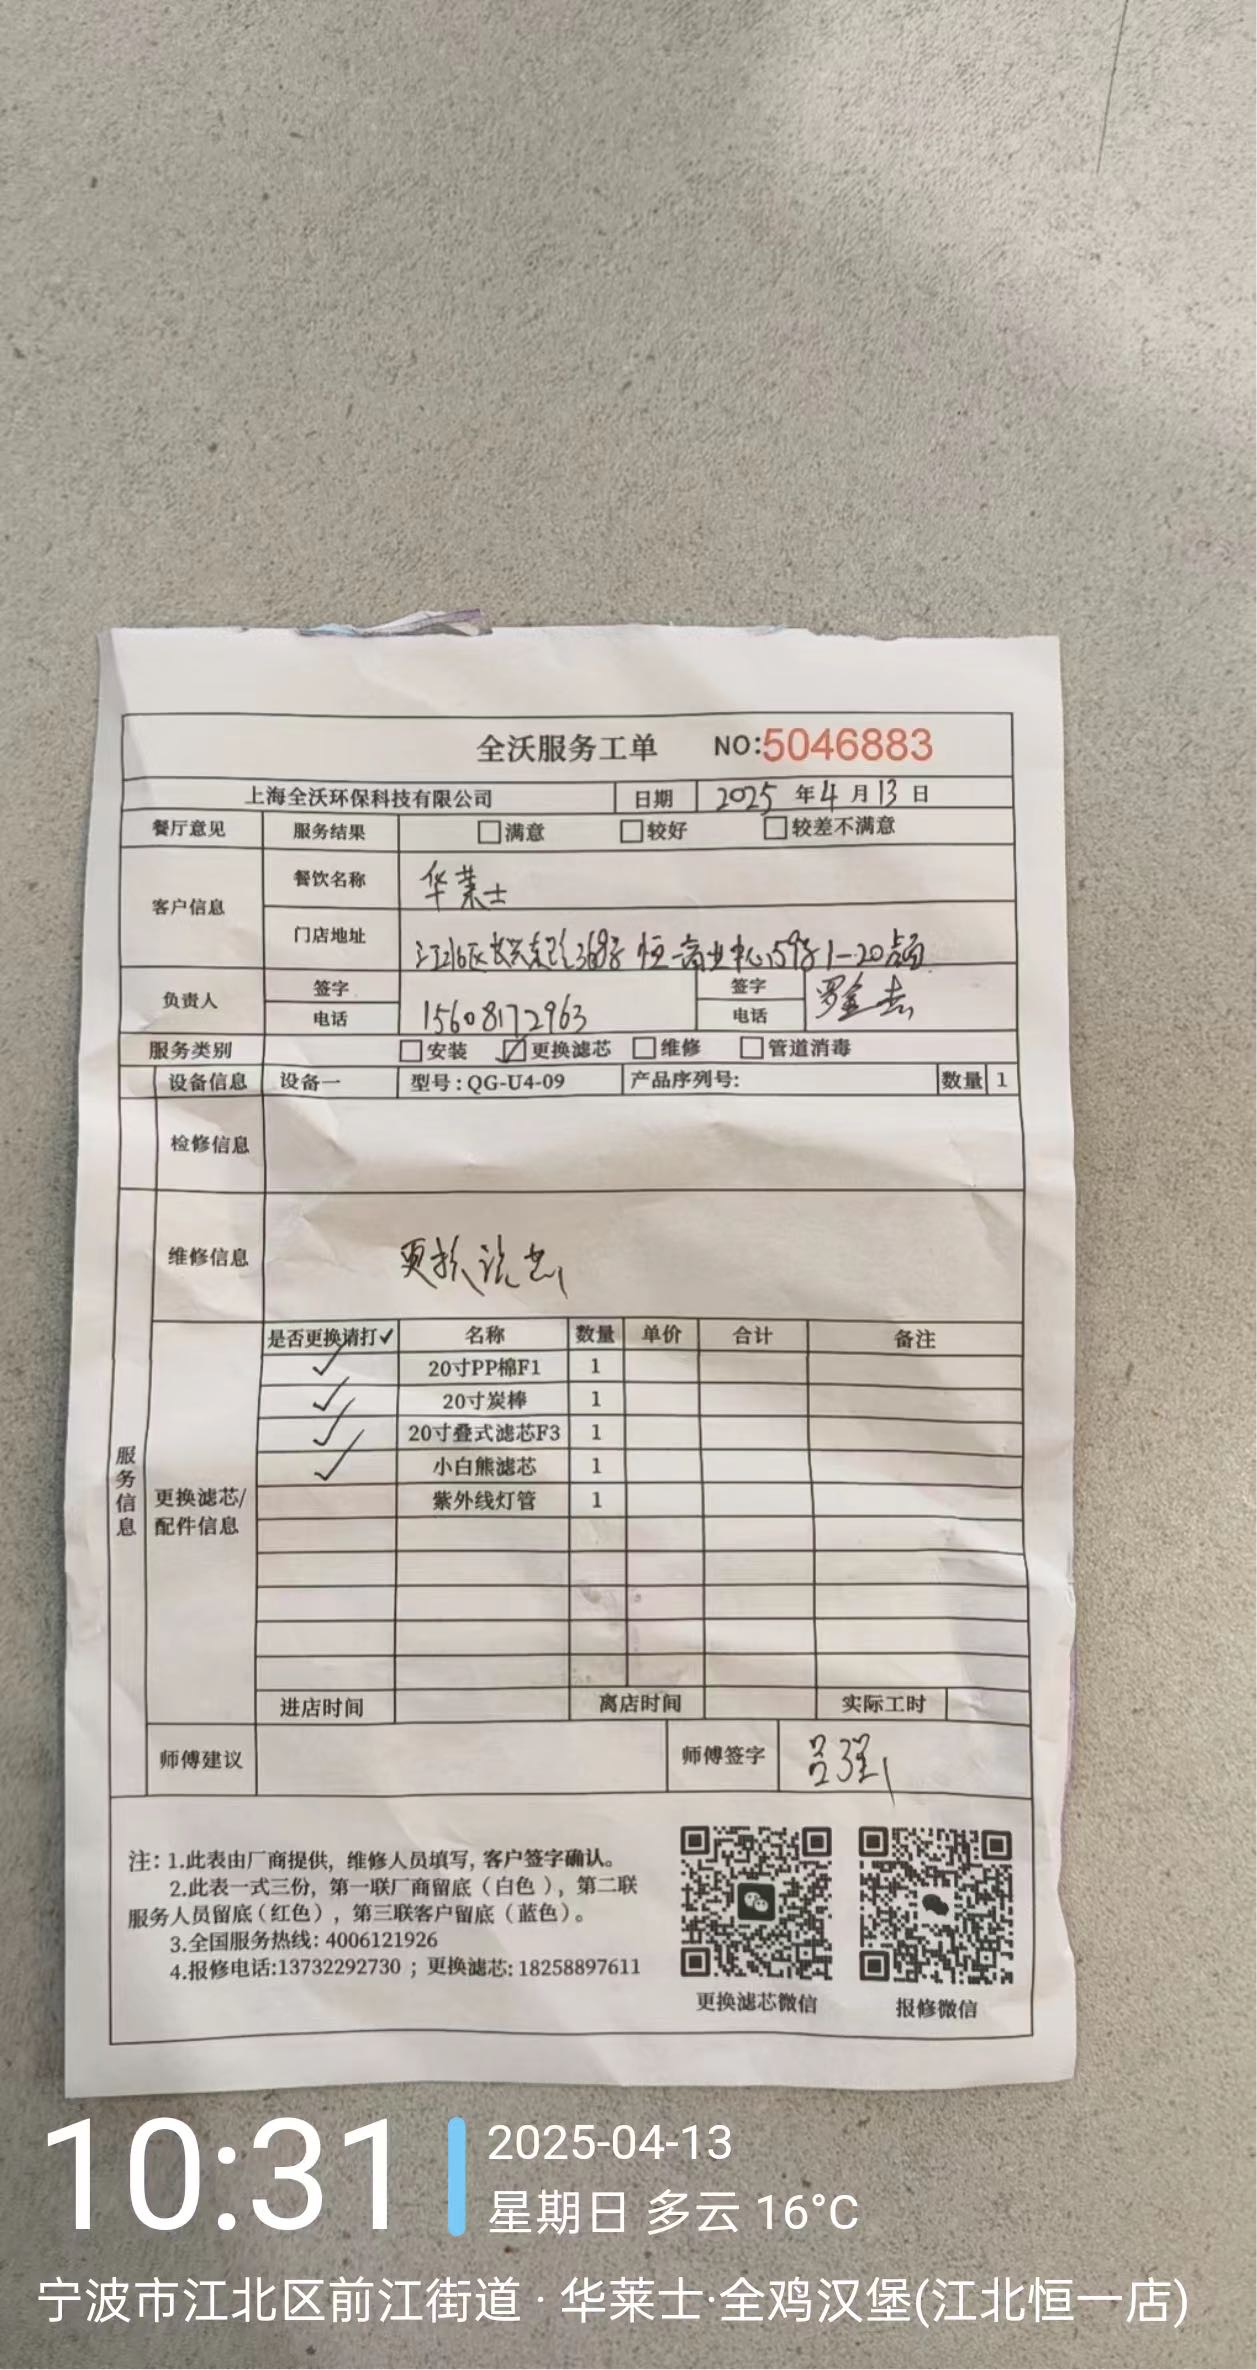 全沃服务工单 NO:5046883
上海全沃环保科技有限公司 日期 2025 年 4 月 13 日
餐厅意见 服务结果 □满意 □较好 □较差不满意
客户信息 餐饮名称 华莱士
门店地址 江北区长兴东路368号 恒一商业中心59号1-20商铺
负责人 签字 签字 罗金
电话 15608172963 电话
服务类别 □安装 ☑更换滤芯 □维修 □管道消毒
设备信息 设备一 型号:QG-U4-09 产品序列号: 数量 1
检修信息
维修信息 更换滤芯
服务信息
更换滤芯/配件信息
是否更换请打✓ 名称 数量 单价 合计 备注
✓ 20寸PP棉F1 1
✓ 20寸炭棒 1
✓ 20寸叠式滤芯F3 1
✓ 小白熊滤芯 1
紫外线灯管 1
进店时间 离店时间 实际工时
师傅建议 师傅签字 吕强
注: 1.此表由厂商提供, 维修人员填写, 客户签字确认。
2.此表一式三份, 第一联厂商留底（白色）, 第二联
服务人员留底（红色）, 第三联客户留底（蓝色）。
3.全国服务热线: 4006121926
4.报修电话:13732292730 ; 更换滤芯: 18258897611
更换滤芯微信 报修微信
10:31 2025-04-13
星期日 多云 16°C
宁波市江北区前江街道 · 华莱士·全鸡汉堡(江北恒一店)